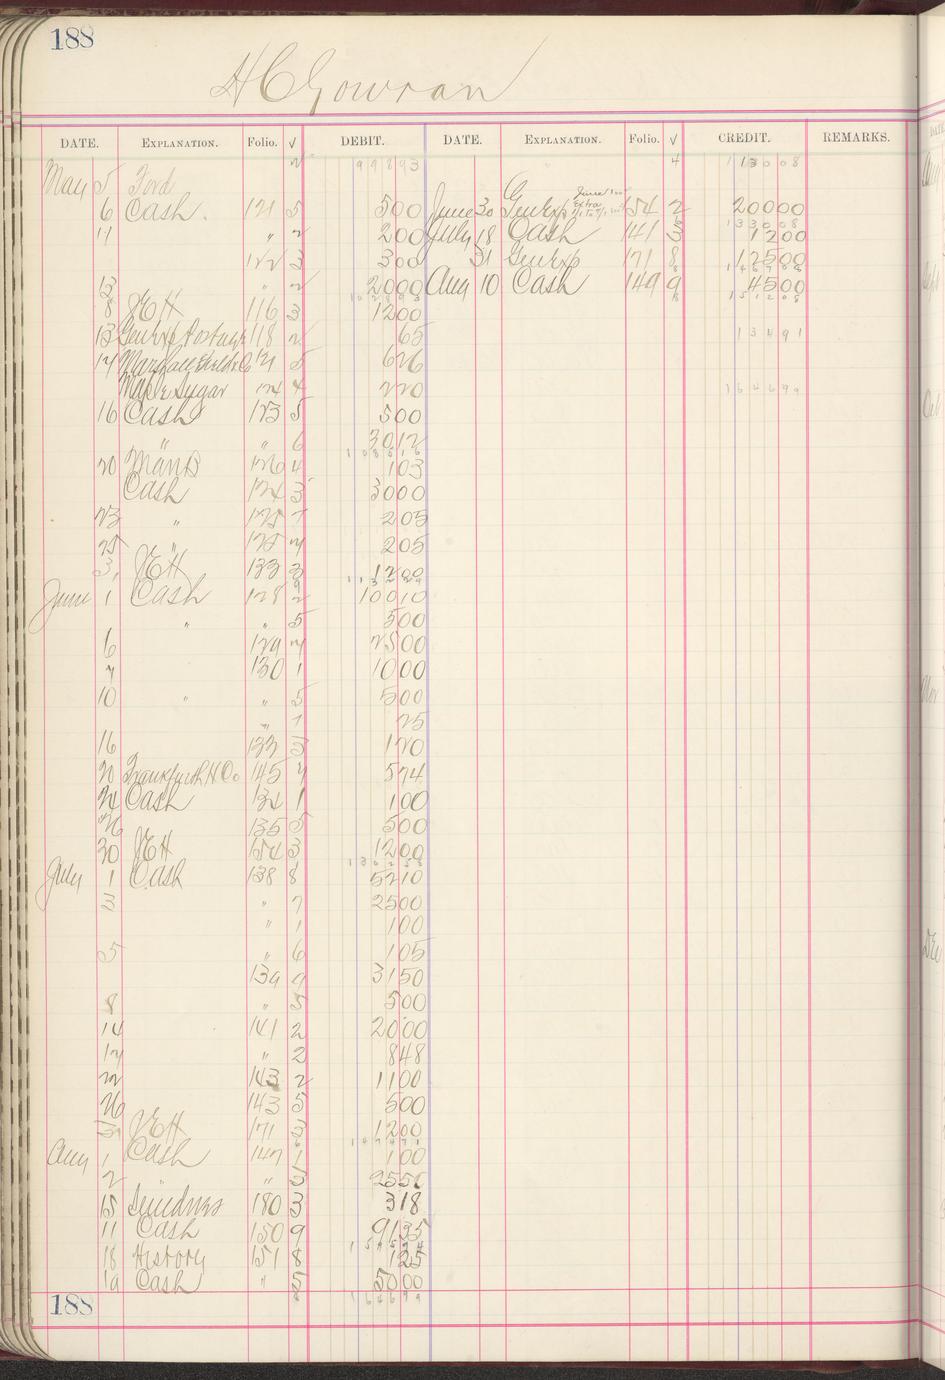 188
H C Gowran
DATE. EXPLANATION. Folio. √ DEBIT. DATE. EXPLANATION. Folio. √ CREDIT. REMARKS.
2 99893 4 113008
May 5 Ford
6 Cash. 121 5 500 June 30 Gen Exp 154 2 20000
133008
" 2 200 July 18 Cash 141 3 1200
122 3 300 31 Gen Exp 171 8 12500
13 " 2 2000 Aug 10 Cash 149 9 4500
8 JEH 116 3 1200
13 Gen Exp Postage 118 2 65 13491
14 Marshall Field & Co 121 5 626
Maple Sugar 124 4 220 164699
16 Cash 123 5 500
" " 6 3012
20 126 4 103
Cash 124 3 3000
23 " 125 7 205
25 " 125 7 205
31 JEH 133 3 1200
June 1 Cash 128 2 10010
" " 5 500
6 129 7 2500
7 130 1 1000
10 " " 5 500
" 7 25
16 133 3 120
20 Frankfurth H Co 145 7 574
24 Cash 134 1 100
26 135 5 500
30 JEH 154 3 1200
July 1 Cash 138 8 5210
3 " 7 2500
" 1 100
5 " 6 105
139 9 3150
8 " 5 500
14 141 2 2000
17 " 2 848
22 143 2 1100
26 143 5 500
31 JEH 171 3 1200
Aug 1 Cash 147 1 100
2 " 5 2550
15 180 3 318
11 Cash 150 9 9135
18 History 151 8 125
19 Cash " 5 5000
188 164699